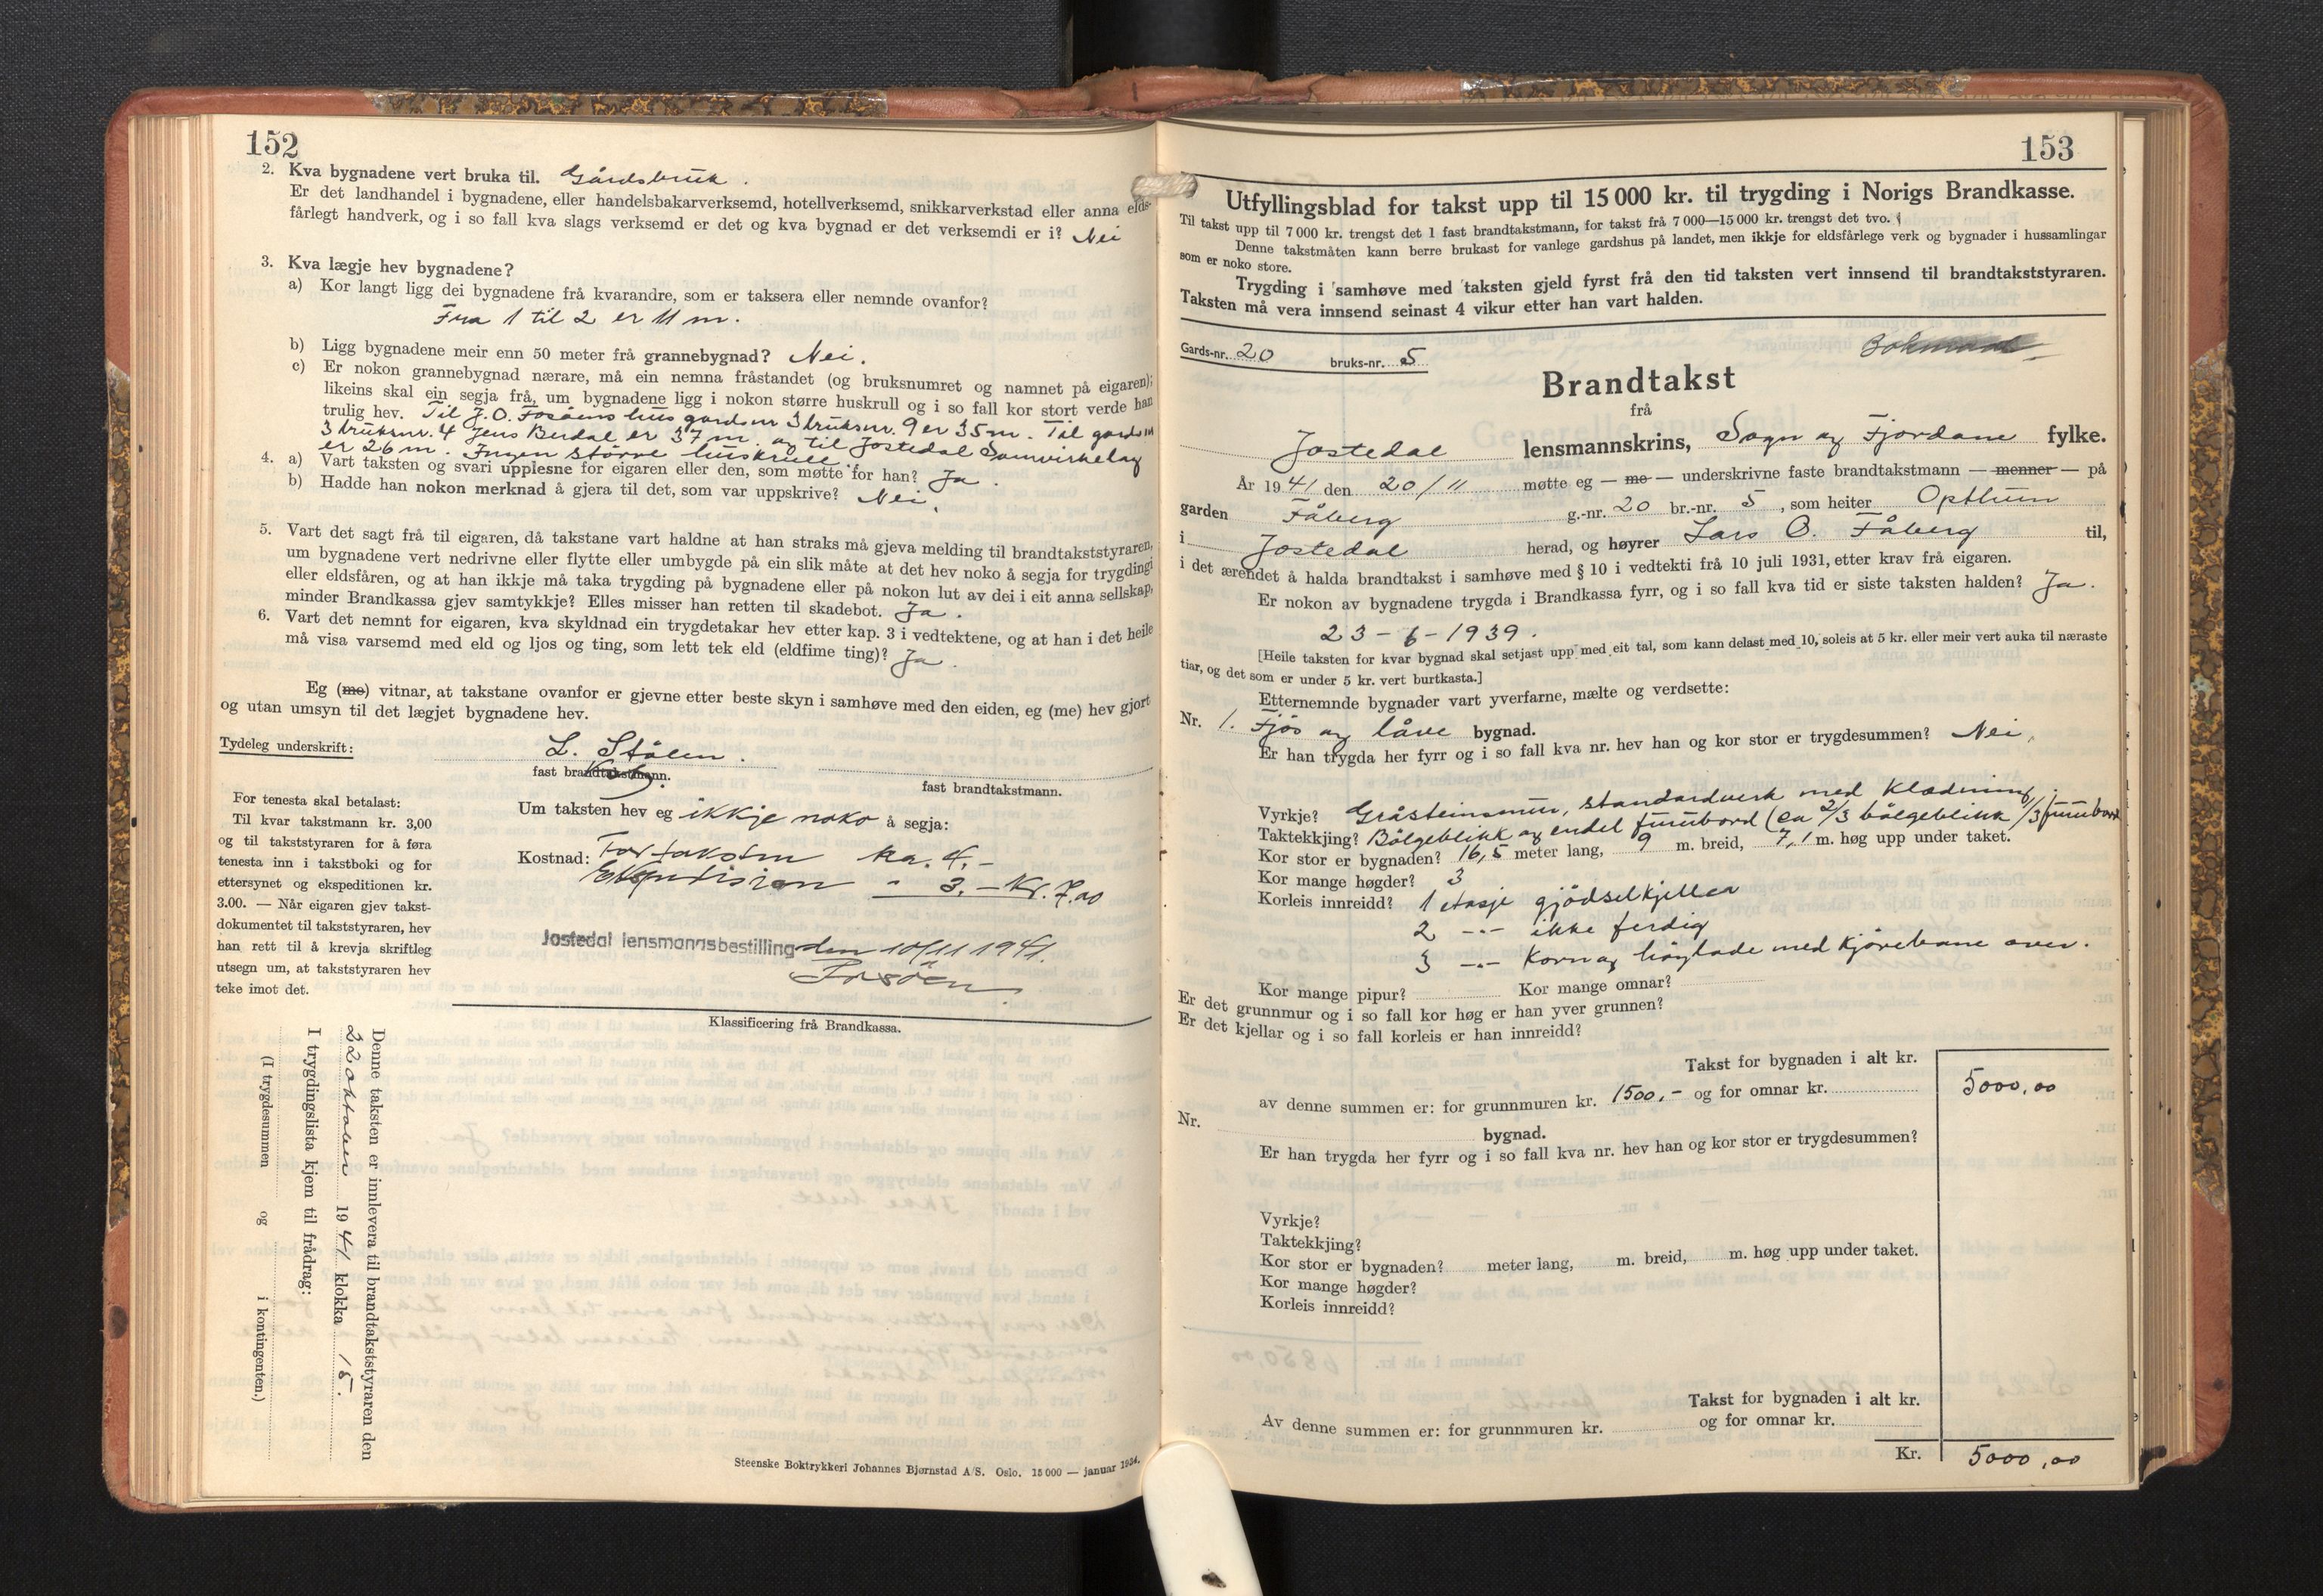 152
2. Kva bygnadene vert bruka til. Gårdsbruk.
Er det landhandel i bygnadene, eller handelsbakarverksemd, hotellverksemd, snikkarverkstad eller anna elds-
fårlegt handverk, og i so fall kva slags verksemd er det og kva bygnad er det verksemdi er i? Nei
3. Kva lægje hev bygnadene?
a) Kor langt ligg dei bygnadene frå kvarandre, som er taksera eller nemnde ovanfor?
Fra 1 til 2 er 11 m.
b) Ligg bygnadene meir enn 50 meter frå grannebygnad? Nei.
c) Er nokon grannebygnad nærare, må ein nemna fråstandet (og bruksnumret og namnet på eigaren);
likeins skal ein segja frå, um bygnadene ligg i nokon større huskrull og i so fall kor stort verde han
trulig hev. Til J. O. Fosåens hus gardsnr 3 bruksnr. 9 er 35 m. Til gardsnr
3 bruksnr. 4 Jens Berdal er 37 m. og til Jostedal Samvirkelag
er 26 m. Ingen større huskrull
4. a) Vart taksten og svari upplesne for eigaren eller den, som møtte for han? Ja.
b) Hadde han nokon merknad å gjera til det, som var uppskrive? Nei.
5. Vart det sagt frå til eigaren, då takstane vart haldne at han straks må gjeva melding til brandtakststyraren,
um bygnadene vert nedrivne eller flytte eller umbygde på ein slik måte at det hev noko å segja for trygdingi
eller eldsfåren, og at han ikkje må taka trygding på bygnadene eller på nokon lut av dei i eit anna sellskap,
minder Brandkassa gjev samtykkje? Elles misser han retten til skadebot. Ja.
6. Vart det nemnt for eigaren, kva skyldnad ein trygdetakar hev etter kap. 3 i vedtektene, og at han i det heile
må visa varsemd med eld og ljos og ting, som lett tek eld (eldfime ting)? Ja.
Eg (me) vitnar, at takstane ovanfor er gjevne etter beste skyn i samhøve med den eiden, eg (me) hev gjort
og utan umsyn til det lægjet bygnadene hev.
Tydeleg underskrift: L. Stølen.
fast brandtakstmann.
fast brandtakstmann.
For tenesta skal betalast:
Til kvar takstmann kr. 3,00
og til takststyraren for å føra
tenesta inn i takstboki og for
ettersynet og ekspeditionen kr.
3.00. — Når eigaren gjev takst-
dokumentet til takststyraren, hev
han rett til å krevja skriftleg
utsegn um, at takststyraren hev
teke imot det.
Um taksten hev eg ikkje noko å segja:
Kostnad: For taksten kr. 4.-
Ekspedisjon " 3.- Kr. 7.00
Jostedal lensmannsbestilling den 10/11 1941.
Fosøen
Klassificering frå Brandkassa.
Denne taksten er innlevera til brandtakststyraren den
22 oktober 1941 klokka 15.
I trygdingslista kjem til frådrag:
(I trygdesummen og i kontingenten.)
Steenske Boktrykkeri Johannes Bjørnstad A/S. Oslo. 15 000 — januar 1934.
153
Utfyllingsblad for takst upp til 15 000 kr. til trygding i Norigs Brandkasse.
Til takst upp til 7 000 kr. trengst det 1 fast brandtakstmann, for takst frå 7 000—15 000 kr. trengst det tvo.
Denne takstmåten kann berre brukast for vanlege gardshus på landet, men ikkje for eldsfårlege verk og bygnader i hussamlingar
som er noko store.
Trygding i samhøve med taksten gjeld fyrst frå den tid taksten vert innsend til brandtakststyraren.
Taksten må vera innsend seinast 4 vikur etter han vart halden.
Gards-nr. 20 bruks-nr. 5
Brandtakst
frå
Jostedal lensmannskrins, Sogn og Fjordane fylke.
År 1941 den 20/11 møtte eg — me — underskrivne faste brandtakstmann — menner — på
garden Fåberg g.-nr. 20 br.-nr. 5, som heiter Opthun
i Jostedal herad, og høyrer Lars O. Fåberg til,
i det ærendet å halda brandtakst i samhøve med § 10 i vedtekti frå 10 juli 1931, etter krav frå eigaren.
Er nokon av bygnadene trygda i Brandkassa fyrr, og i so fall kva tid er siste taksten halden? Ja.
23-6-1939.
[Heile taksten for kvar bygnad skal setjast upp med eit tal, som kann delast med 10, soleis at 5 kr. eller meir vert auka til næraste
tiar, og det som er under 5 kr. vert burtkasta.]
Etternemnde bygnader vart yverfarne, mælte og verdsette:
Nr. 1. Fjøs og låve bygnad.
Er han trygda her fyrr og i so fall kva nr. hev han og kor stor er trygdesummen? Nei.
Vyrkje? Gråsteinsmur, standardverk med Klædning.
Taktekkjing? Bølgeblikk og endel furubord (ca 2/3 bølgeblikk 1/3 furubord
Kor stor er bygnaden? 16,5 meter lang, 9 m. breid, 7,1 m. høg upp under taket.
Kor mange høgder? 3
Korleis innreidd? 1 etasje gjødselkjeller
2 -"- ikke ferdig
3 -"- Korn og høylade med kjørebane over.
Kor mange pipur? Kor mange omnar?
Er det grunnmur og i so fall kor høg er han yver grunnen?
Er det kjellar og i so fall korleis er han innreidd?
Takst for bygnaden i alt kr. 5000,00
av denne summen er: for grunnmuren kr. 1500,- og for omnar kr.
Nr. bygnad.
Er han trygda her fyrr og i so fall kva nr. hev han og kor stor er trygdesummen?
Vyrkje?
Taktekkjing?
Kor stor er bygnaden? meter lang, m. breid, m. høg upp under taket.
Kor mange høgder?
Korleis innreidd?
Takst for bygnaden i alt kr.
Av denne summen er: for grunnmuren kr. og for omnar kr.
Kr. 5000,00